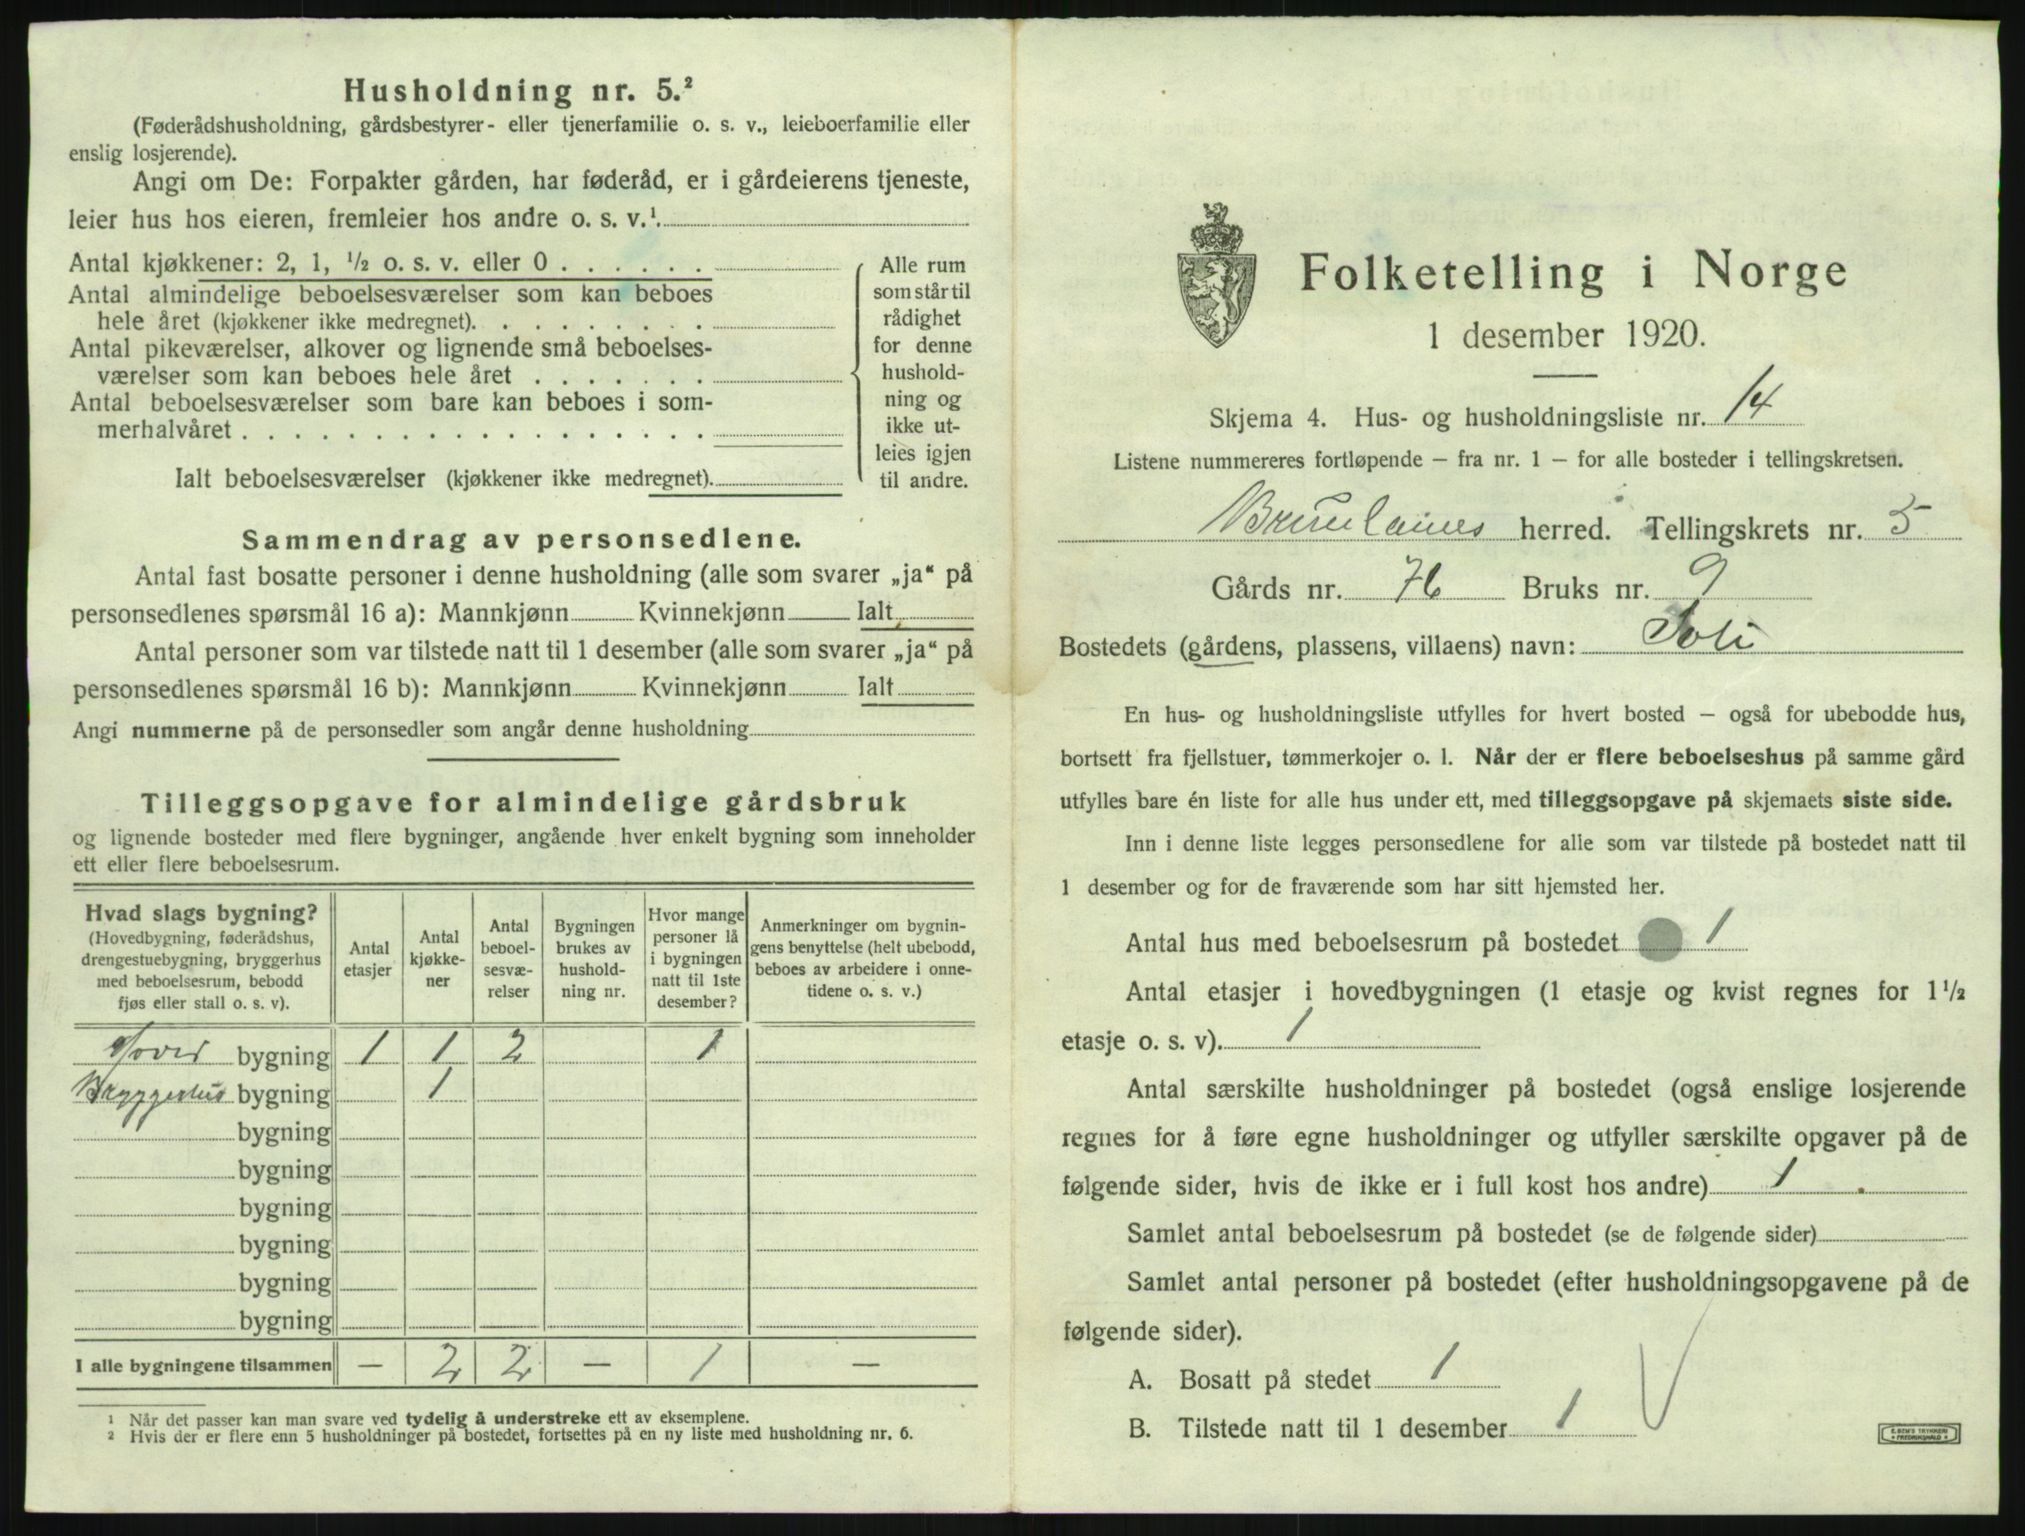 Husholdning nr. 5.²
(Føderådshusholdning, gårdsbestyrer- eller tjenerfamilie o. s. v., leieboerfamilie eller
enslig losjerende).
Angi om De: Forpakter gården, har føderåd, er i gårdeierens tjeneste,
leier hus hos eieren, fremleier hos andre o. s. v.¹.
Antal kjøkkener: 2, 1, ½ o. s. v. eller 0 . . . . . .
Antal almindelige beboelsesværelser som kan beboes
hele året (kjøkkener ikke medregnet). . . . . . . . .
Antal pikeværelser, alkover og lignende små beboelses-
værelser som kan beboes hele året . . . . . . .
Antal beboelsesværelser som bare kan beboes i som-
merhalvåret . . . . . . . . . . . . . . . . . .
Ialt beboelsesværelser (kjøkkener ikke medregnet).
Alle rum
som står til
rådighet
for denne
hushold-
ning og
ikke ut-
leies igjen
til andre.
Sammendrag av personsedlene.
Antal fast bosatte personer i denne husholdning (alle som svarer „ja“ på
personsedlenes spørsmål 16 a): Mannkjønn Kvinnekjønn Ialt
Antal personer som var tilstede natt til 1 desember (alle som svarer „ja“ på
personsedlenes spørsmål 16 b): Mannkjønn Kvinnekjønn Ialt
Angi nummerne på de personsedler som angår denne husholdning
Tilleggsopgave for almindelige gårdsbruk
og lignende bosteder med flere bygninger, angående hver enkelt bygning som inneholder
ett eller flere beboelsesrum.
Hvad slags bygning?
(Hovedbygning, føderådshus,
drengestuebygning, bryggerhus
med beboelsesrum, bebodd
fjøs eller stall o. s. v).
Antal
etasjer
Antal
kjøkke-
ner
Antal
beboel-
sesvæ-
relser
Bygningen
brukes av
hushold-
ning nr.
Hvor mange
personer lå
i bygningen
natt til 1ste
desember?
Anmerkninger om bygnin-
gens benyttelse (helt ubebodd,
beboes av arbeidere i onne-
tidene o. s. v.)
Hoved bygning 1 1 2 1
Bryggerhus bygning 1
bygning
bygning
bygning
bygning
bygning
bygning
I alle bygningene tilsammen — 2 2 — 1 —
¹ Når det passer kan man svare ved tydelig å understreke ett av eksemplene.
² Hvis der er flere enn 5 husholdninger på bostedet, fortsettes på en ny liste med husholdning nr. 6.
Folketelling i Norge
1 desember 1920.
Skjema 4. Hus- og husholdningsliste nr. 14
Listene nummereres fortløpende – fra nr. 1 – for alle bosteder i tellingskretsen.
Brunlanes herred. Tellingskrets nr. 5
Gårds nr. 76 Bruks nr. 9
Bostedets (gårdens, plassens, villaens) navn: Soli
En hus- og husholdningsliste utfylles for hvert bosted – også for ubebodde hus,
bortsett fra fjellstuer, tømmerkojer o. l. Når der er flere beboelseshus på samme gård
utfylles bare én liste for alle hus under ett, med tilleggsopgave på skjemaets siste side.
Inn i denne liste legges personsedlene for alle som var tilstede på bostedet natt til
1 desember og for de fraværende som har sitt hjemsted her.
Antal hus med beboelsesrum på bostedet 1
Antal etasjer i hovedbygningen (1 etasje og kvist regnes for 1½
etasje o. s. v). 1
Antal særskilte husholdninger på bostedet (også enslige losjerende
regnes for å føre egne husholdninger og utfyller særskilte opgaver på de
følgende sider, hvis de ikke er i full kost hos andre) 1
Samlet antal beboelsesrum på bostedet (se de følgende sider)
Samlet antal personer på bostedet (efter husholdningsopgavene på de
følgende sider).
A. Bosatt på stedet 1
B. Tilstede natt til 1 desember 1
E. SEM'S TRYKKERI
FREDRIKSHALD